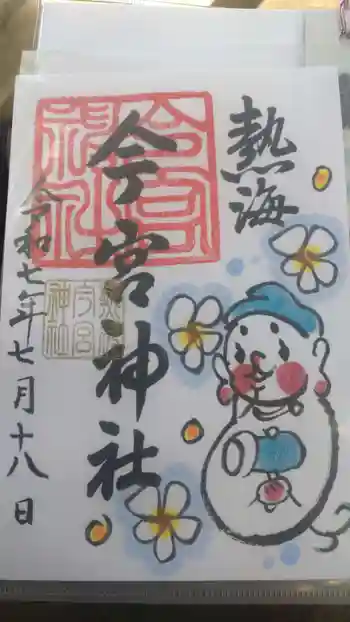 熱海
今宮神社
令和七年七月十八日
今宮
神社
熱海
今宮
神社